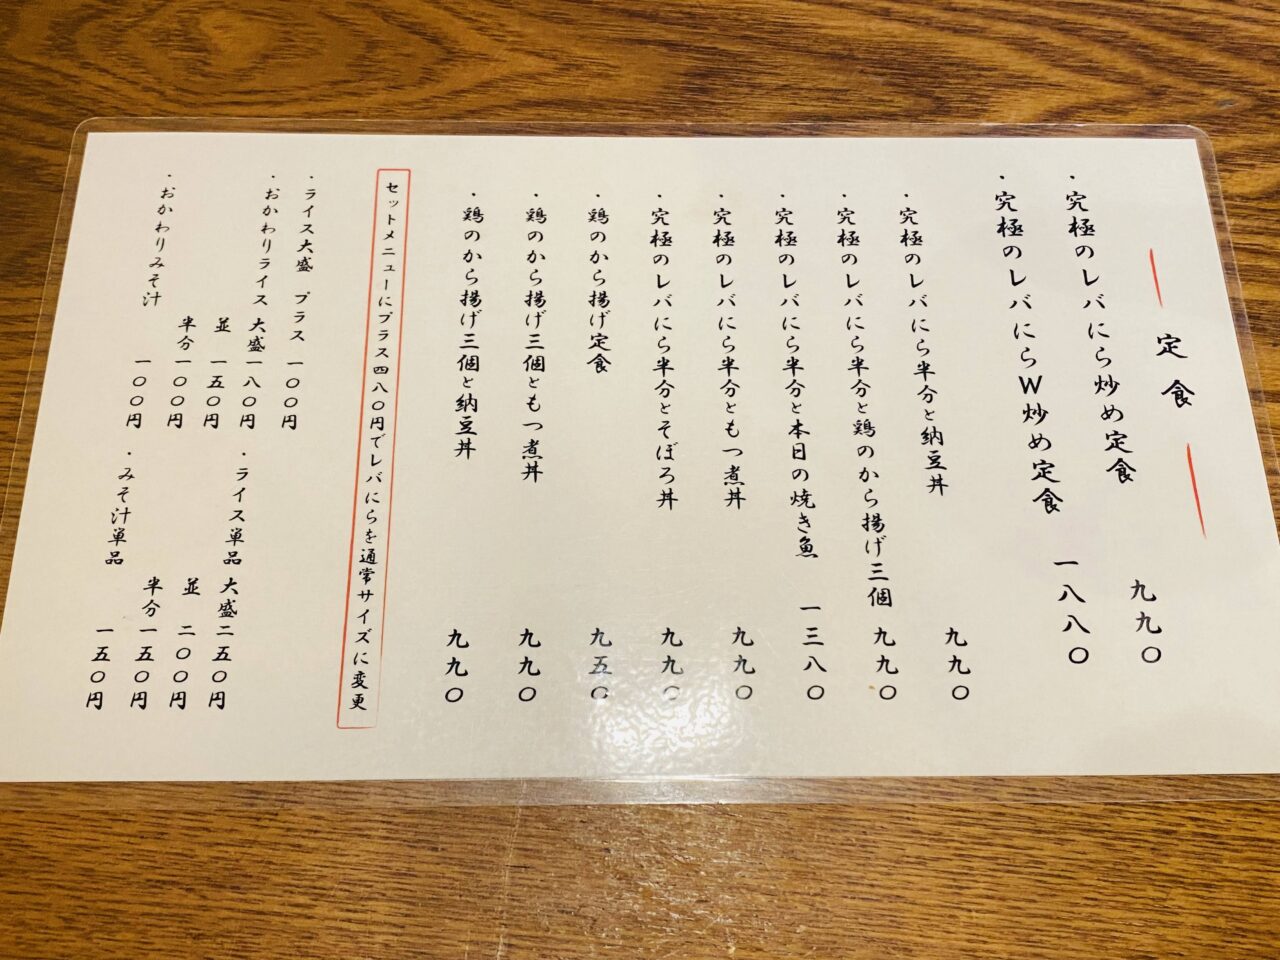 定食
・究極のレバにら炒め定食 九九〇
・究極のレバにらW炒め定食 一八八〇
・究極のレバにら半分と納豆丼 九九〇
・究極のレバにら半分と鶏のから揚げ三個 九九〇
・究極のレバにら半分と本日の焼き魚 一三八〇
・究極のレバにら半分ともつ煮丼 九九〇
・究極のレバにら半分とそぼろ丼 九九〇
・鶏のから揚げ定食 九五〇
・鶏のから揚げ三個ともつ煮丼 九九〇
・鶏のから揚げ三個と納豆丼 九九〇
セットメニューにプラス四八〇円でレバにらを通常サイズに変更
・ライス大盛 プラス 一〇〇円
・おかわりライス 大盛一八〇円
並 一五〇円
半分一〇〇円
・おかわりみそ汁 一〇〇円
・ライス単品 大盛二五〇円
並 二〇〇円
半分一五〇円
・みそ汁単品 一五〇円